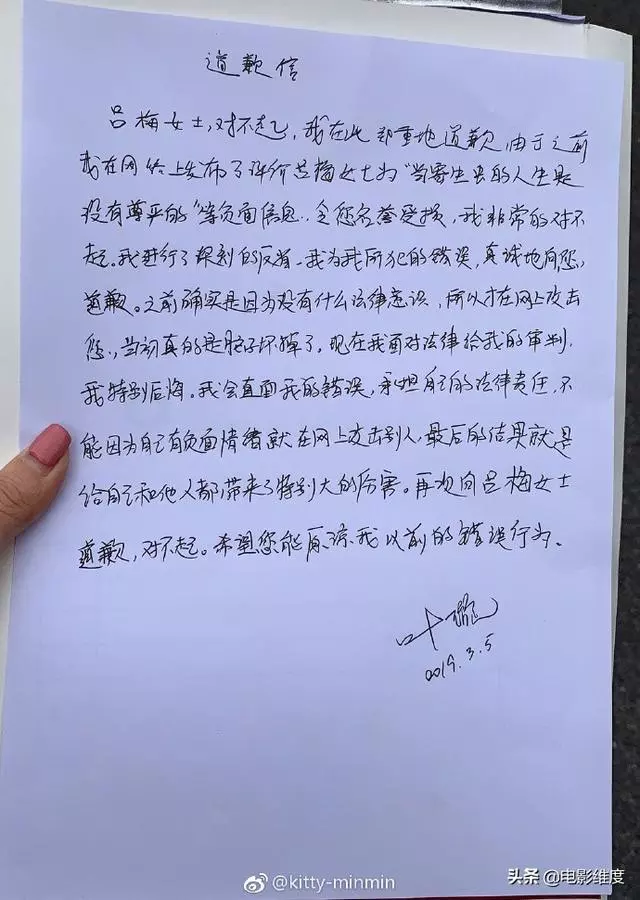 道歉信
吕梅女士,对不起,我在此郑重地道歉由于之前
我在网络上发布了评价吕梅女士为“当寄生虫的人生是
没有尊严的”等负面信息.令您名誉受损,我非常的对不
起。我进行了深刻的反省.我为我所犯的错误,真诚地向您,
道歉。之前确实是因为没有什么法律意识,所以才在网上攻击
您.,当初真的是脑子坏掉了,现在我面对法律给我的审判.
我特别后悔。我会直面我的错误,承担自己的法律责任.不
能因为自己有负面情绪就在网上攻击别人,最后的结果就是
给自己和他人都带来了特别大的厉害。再次向吕梅女士
道歉,对不起。希望您能原谅我以前的错误行为.
叶璇
2019.3.5
@kitty-minmin
头条 @电影维度